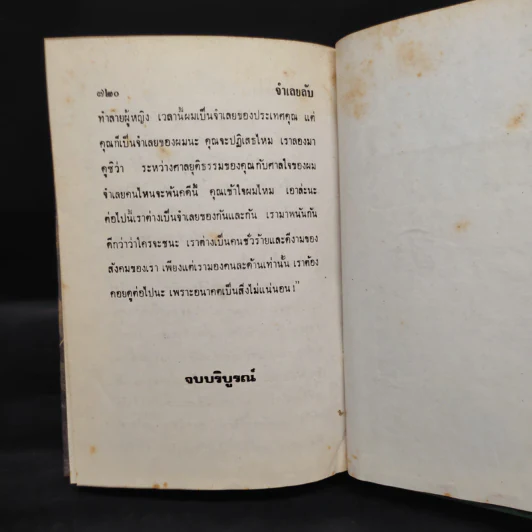 ๗๒๐ จำเลยลับ
ทำลายผู้หญิง เวลานี้ผมเป็นจำเลยของประเทศคุณ แต่
คุณก็เป็นจำเลยของผมนะ คุณจะปฏิเสธไหม เราลองมา
ดูซิว่า ระหว่างศาลยุติธรรมของคุณกับศาลใจของผม
จำเลยคนไหนจะพ้นคดีนี้ คุณเข้าใจผมไหม เอาล่ะนะ
ต่อไปนี้เราต่างเป็นจำเลยของกันและกัน เรามาพนันกัน
ดีกว่าว่าใครจะชนะ เราต่างเป็นคนชั่วร้ายและดีงามของ
สังคมของเรา เพียงแต่เรามองคนละด้านเท่านั้น เราต้อง
คอยดูต่อไปนะ เพราะอนาคตเป็นสิ่งไม่แน่นอน!"
จบบริบูรณ์